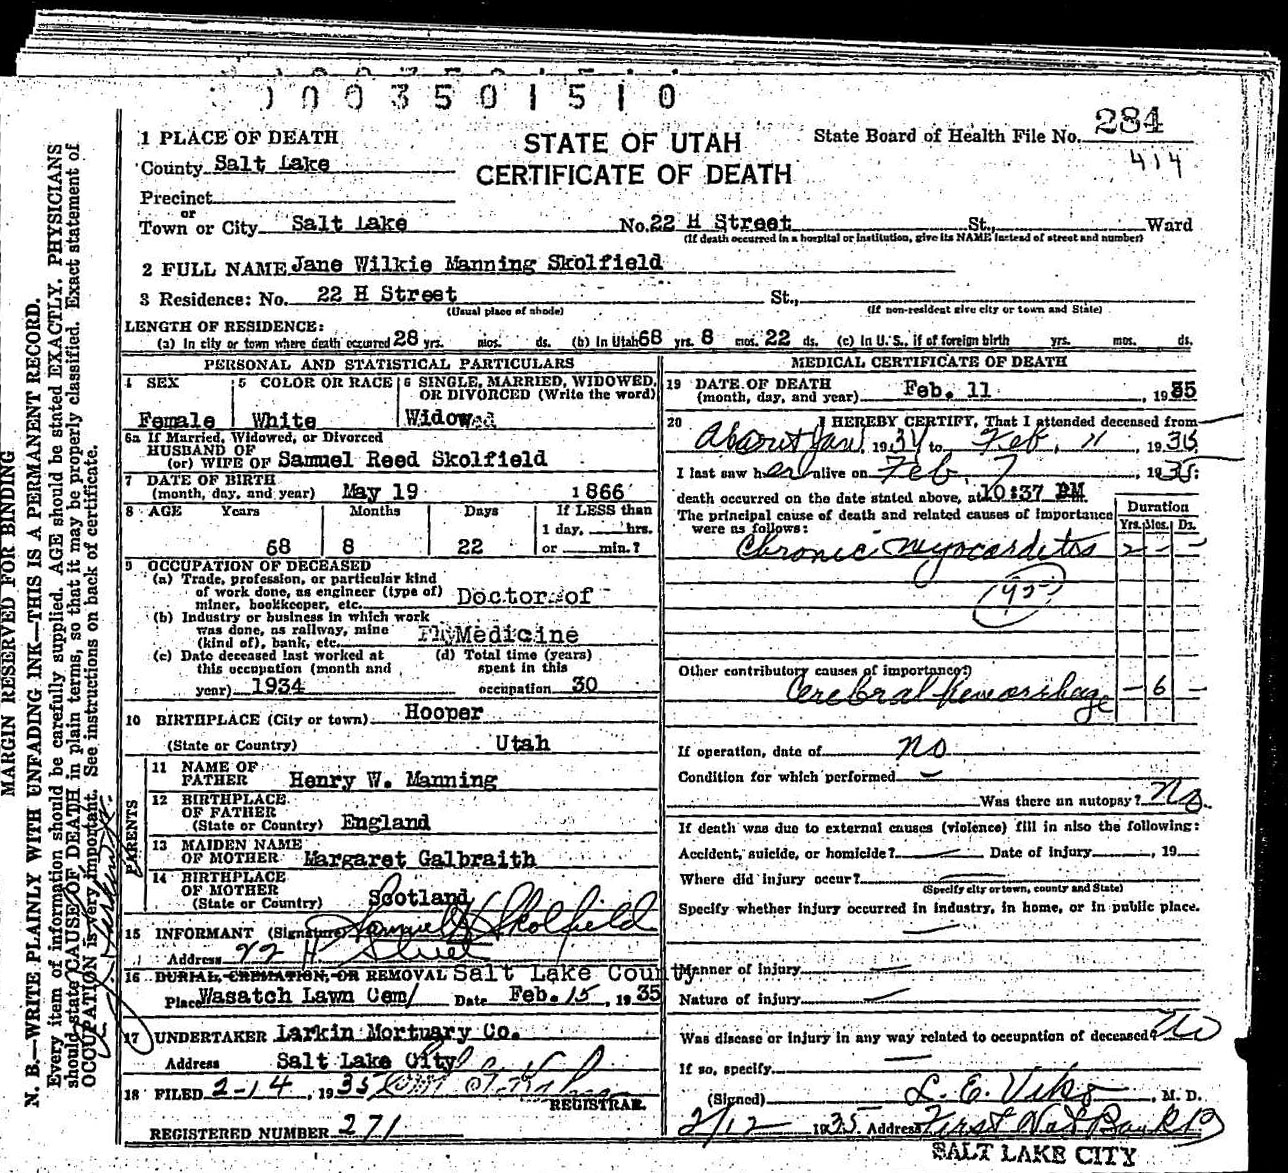 1003501510
284
414
STATE OF UTAH
CERTIFICATE OF DEATH
State Board of Health File No.
1 PLACE OF DEATH
County Salt Lake
Precinct
or
Town or City Salt Lake No. 22 H Street St., Ward
(If death occurred in a hospital or institution, give its NAME instead of street and number)
2 FULL NAME Jane Wilkie Manning Skolfield
3 Residence: No. 22 H Street St.,
(Usual place of abode) (If non-resident give city or town and State)
LENGTH OF RESIDENCE:
(a) In city or town where death occurred 28 yrs. mos. ds. (b) In Utah 68 yrs. 8 mos. 22 ds. (c) In U.S., if of foreign birth yrs. mos. ds.
PERSONAL AND STATISTICAL PARTICULARS
4 SEX 5 COLOR OR RACE 6 SINGLE, MARRIED, WIDOWED, OR DIVORCED (Write the word)
Female White Widowed
6a If Married, Widowed, or Divorced
HUSBAND OF
(or) WIFE OF Samuel Reed Skolfield
7 DATE OF BIRTH
(month, day, and year) May 19 1866
8 AGE Years Months Days If LESS than
1 day, hrs.
68 8 22 or min.?
9 OCCUPATION OF DECEASED
(a) Trade, profession, or particular kind
of work done, as engineer (type of)
miner, bookkeeper, etc. Doctor of
(b) Industry or business in which work
was done, as railway, mine
(kind of), bank, etc. Medicine
(c) Date deceased last worked at (d) Total time (years)
this occupation (month and spent in this
year) 1934 occupation 30
10 BIRTHPLACE (City or town) Hooper
(State or Country) Utah
PARENTS
11 NAME OF
FATHER Henry W. Manning
12 BIRTHPLACE
OF FATHER
(State or Country) England
13 MAIDEN NAME
OF MOTHER Margaret Galbraith
14 BIRTHPLACE
OF MOTHER
(State or Country) Scotland
15 INFORMANT (Signature) Samuel Skolfield
Address 22 H Street
16 BURIAL, CREMATION, OR REMOVAL Salt Lake County
Place Wasatch Lawn Cem/ Date Feb. 15, 1935
17 UNDERTAKER Larkin Mortuary Co.
Address Salt Lake City
18 FILED 2-14, 1935
REGISTRAR.
REGISTERED NUMBER 271
MEDICAL CERTIFICATE OF DEATH
19 DATE OF DEATH
(month, day, and year) Feb. 11, 1935
20 I HEREBY CERTIFY, That I attended deceased from
About Jan, 1934 to Feb. 11, 1935
I last saw her alive on Feb. 7 1935;
death occurred on the date stated above, at 10:37 PM
The principal cause of death and related causes of importance
were as follows:
Duration
Yrs. Mos. Ds.
Chronic Myocarditis 2 - -
Other contributory causes of importance:
Cerebral hemorrhage - 6 -
If operation, date of no
Condition for which performed
Was there an autopsy? No.
If death was due to external causes (violence) fill in also the following:
Accident, suicide, or homicide? Date of injury, 19
Where did injury occur?
(Specify city or town, county and State)
Specify whether injury occurred in industry, in home, or in public place.
Manner of injury
Nature of injury
Was disease or injury in any way related to occupation of deceased? No
If so, specify
(Signed) L. E. Viko, M. D.
2/12 1935 Address First Nat Bank Bldg
SALT LAKE CITY
MARGIN RESERVED FOR BINDING
N. B.—WRITE PLAINLY WITH UNFADING INK—THIS IS A PERMANENT RECORD.
Every item of information should be carefully supplied. AGE should be stated EXACTLY. PHYSICIANS
should state CAUSE OF DEATH in plain terms, so that it may be properly classified. Exact statement of
OCCUPATION is very important. See instructions on back of certificate.